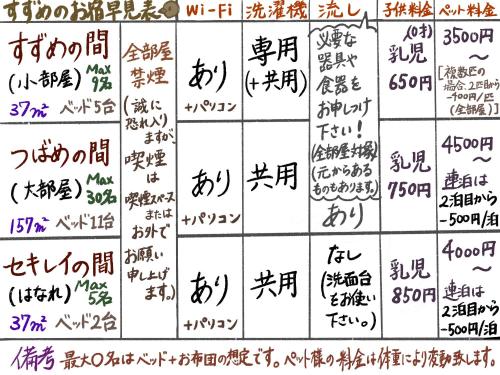 すずめのお宿早見表
Wi-Fi
洗濯機
流し
子供料金
ペット料金
すずめの間
(小部屋)
Max
9名
37㎡ ベッド5台
全部屋
禁煙
(誠に
恐れ入り
ますが、
喫煙
は
喫煙スペース
または
お外で
お願い
申し上げ
ます。)
あり
+パソコン
専用
(+共用)
必要な
器具や
食器を
お申しつけ
下さい!
(全部屋対象)
(元からある
ものもあります。)
あり
(0才)
乳児
650円
3500円
〜
[複数匹の
場合、2匹目から
-400円/匹
(全部屋)]
つばめの間
(大部屋)
Max
30名
157㎡ ベッド11台
あり
+パソコン
共用
乳児
750円
4500円
〜
連泊は
2泊目から
-500円/泊
セキレイの間
(はなれ)
Max
5名
37㎡ ベッド2台
あり
+パソコン
共用
なし
(洗面台
をお使い
下さい。)
乳児
850円
4000円
〜
連泊は
2泊目から
-500円/泊
備考 最大〇名はベッド+お布団の想定です。ペット様の料金は体重により変動致します。